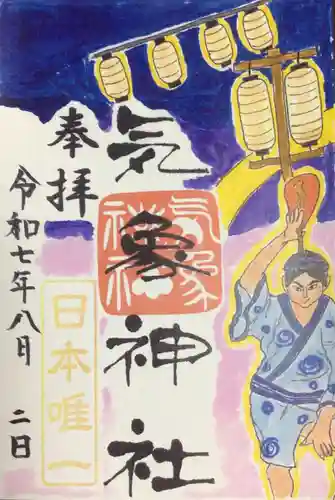 奉拝
気象神社
気象神社
日本唯一
令和七年八月二日